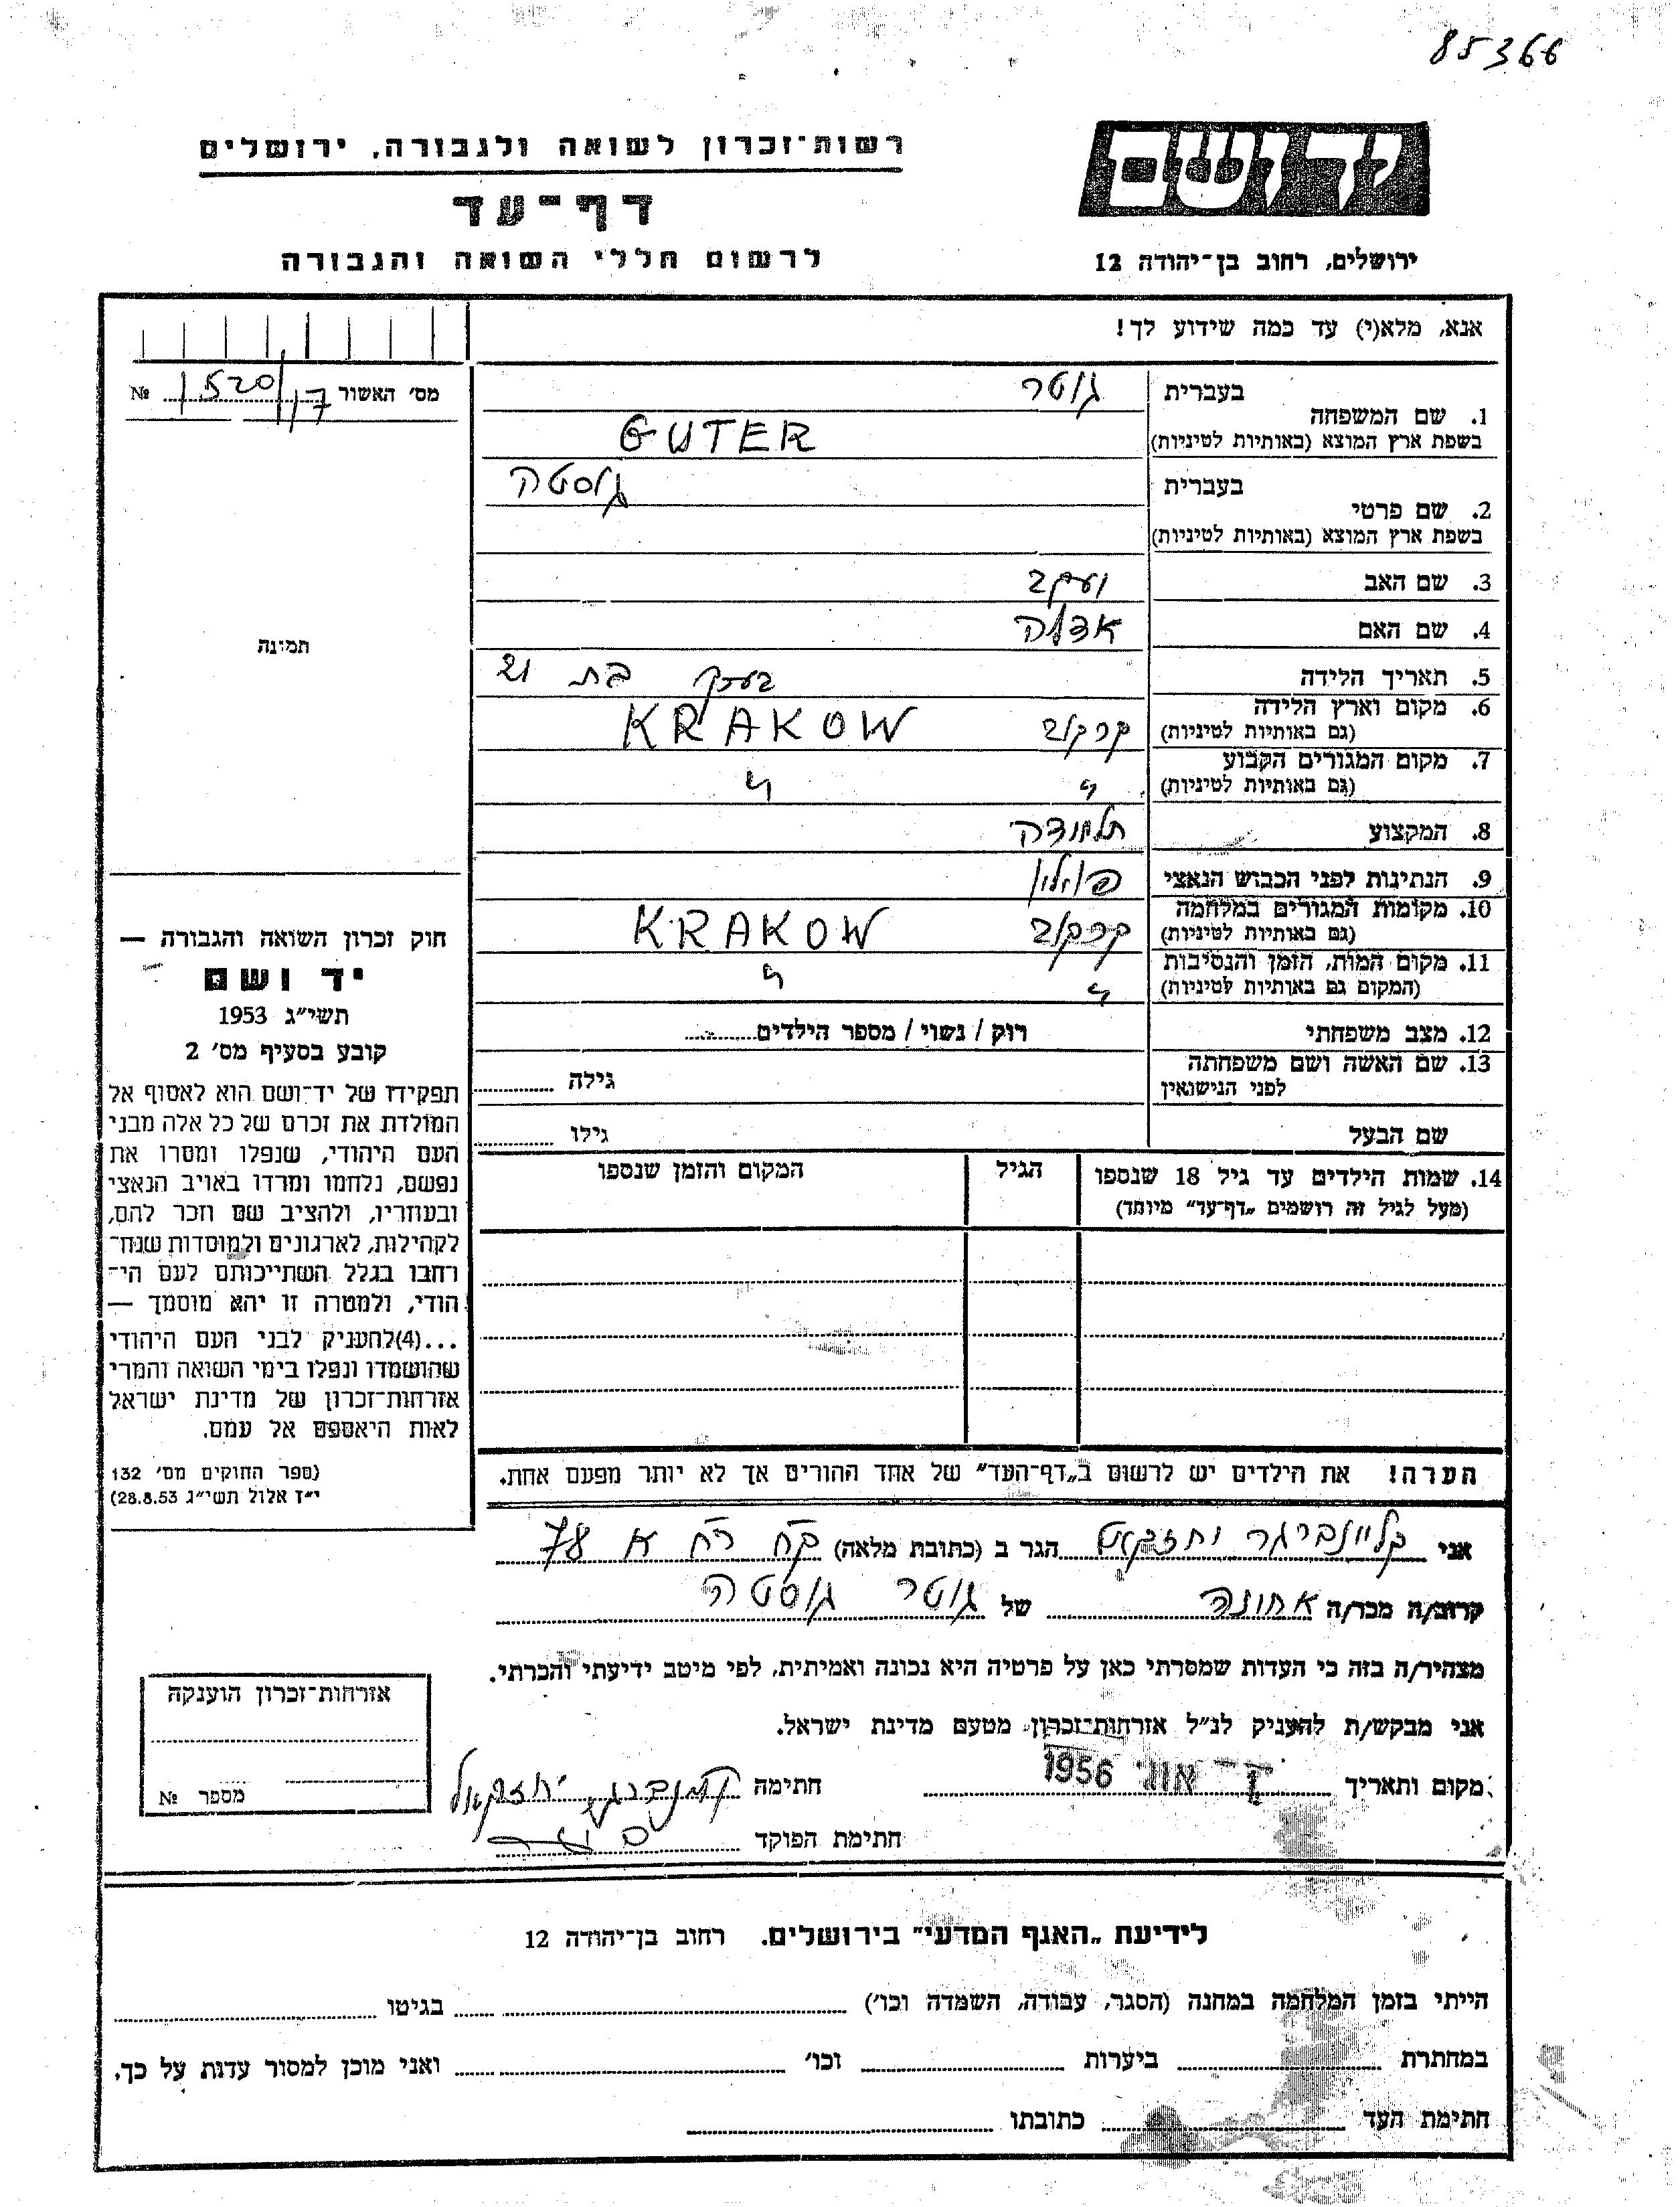 85366
יד ושם
רשות־זכרון לשואה ולגבורה, ירושלים
דף־עד
לרשום חללי השואה והגבורה
ירושלים, רחוב בן־יהודה 12
אנא, מלא(י) עד כמה שידוע לך!
מס׳ האשור 1520/17 №
1. שם המשפחה
בעברית גוטר
בשפת ארץ המוצא (באותיות לטיניות) GUTER
2. שם פרטי
בעברית גוסטה
בשפת ארץ המוצא (באותיות לטיניות)
3. שם האב יעקב
4. שם האם אדלה
5. תאריך הלידה בערך בת 21
6. מקום וארץ הלידה
(גם באותיות לטיניות) קרקוב KRAKOW
7. מקום המגורים הקבוע
(גם באותיות לטיניות) " "
8. המקצוע תלמידה
9. הנתינות לפני הכבוש הנאצי פולין
10. מקומות המגורים במלחמה
(גם באותיות לטיניות) קרקוב KRAKOW
11. מקום המות, הזמן והנסיבות
(המקום גם באותיות לטיניות) " "
12. מצב משפחתי רוק / נשוי / מספר הילדים
13. שם האשה ושם משפחתה
לפני הנישואין
גילה
שם הבעל גילו
14. שמות הילדים עד גיל 18 שנספו
(מעל לגיל זה רושמים „דף־עד" מיוחד)
הגיל
המקום והזמן שנספו
תמונה
חוק זכרון השואה והגבורה —
יד ושם
תשי״ג 1953
קובע בסעיף מס׳ 2
תפקידו של יד־ושם הוא לאסוף אל
המולדת את זכרם של כל אלה מבני
העם היהודי, שנפלו ומסרו את
נפשם, נלחמו ומרדו באויב הנאצי
ובעוזריו, ולהציב שם וזכר להם,
לקהילות, לארגונים ולמוסדות שנח־
רחבו בגלל השתייכותם לעם הי־
הודי, ולמטרה זו יהא מוסמך —
...(4)להעניק לבני העם היהודי
שהושמדו ונפלו בימי השואה והמרי
אזרחות־זכרון של מדינת ישראל
לאות היאספם אל עמם.
(ספר החוקים מס׳ 132
י״ז אלול תשי״ג 28.8.53)
הערה! את הילדים יש לרשום ב„דף־העד" של אחד ההורים אך לא יותר מפעם אחת.
אני קליינברגר יחזקאל הגר ב (כתובת מלאה) 78
קרוב/ה מכר/ה של גוטר גוסטה
מצהיר/ה בזה כי העדות שמסרתי כאן על פרטיה היא נכונה ואמיתית, לפי מיטב ידיעתי והכרתי.
אני מבקש/ת להעניק לנ״ל אזרחות־זכרון מטעם מדינת ישראל.
מקום ותאריך 1956 חתימה יחזקאל
חתימת הפוקד
אזרחות־זכרון הוענקה
מספר №
לידיעת „האגף המדעי" בירושלים. רחוב בן־יהודה 12
הייתי בזמן המלחמה במחנה (הסגר, עבודה, השמדה וכו׳) בגיטו
במחתרת ביערות וכו׳ ואני מוכן למסור עדות על כך.
חתימת העד כתובתו